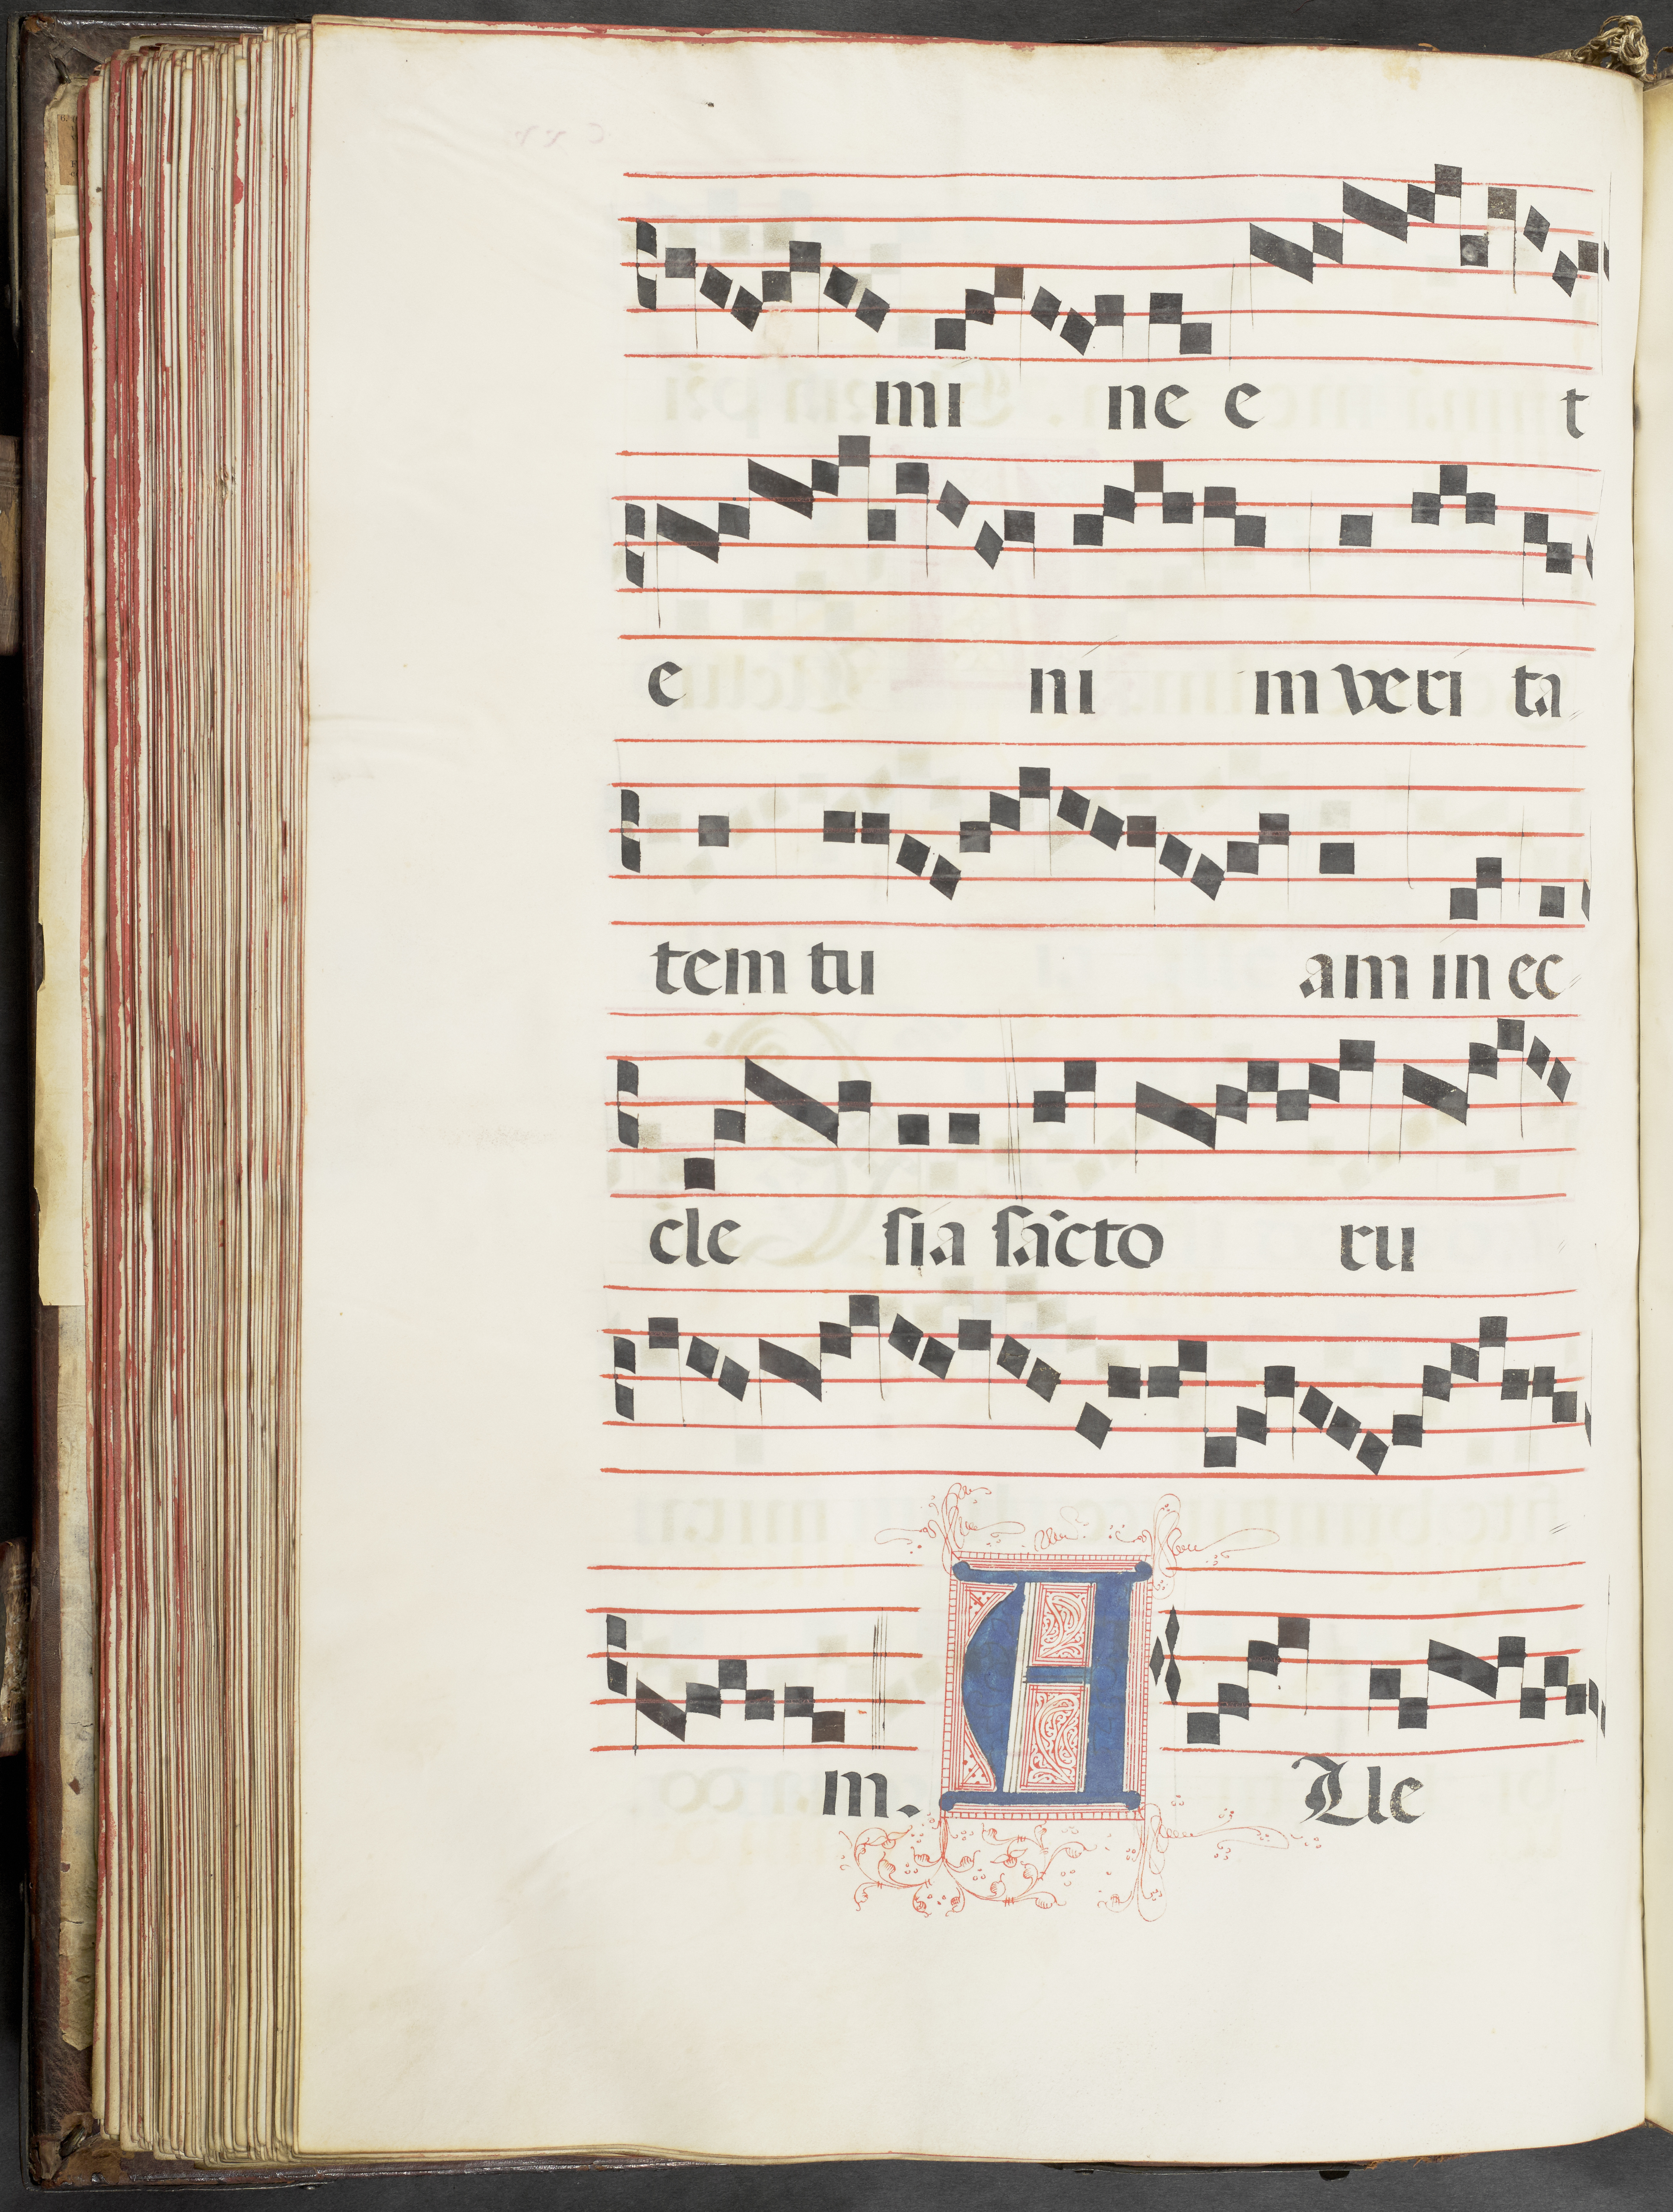 mi ne e t
e ni m veri ta
tem tu am in ec
cle sia sācto ru
m. A Lle